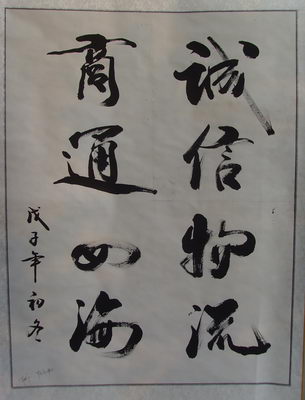 诚信物流
商通四海
戊子年初冬